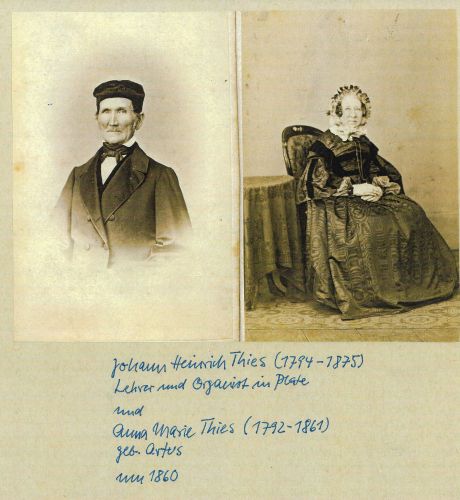 Johann Heinrich Thies (1794-1875)
Lehrer und Organist in Plate
und
Anna Marie Thies (1792-1861)
geb. Artus
um 1860